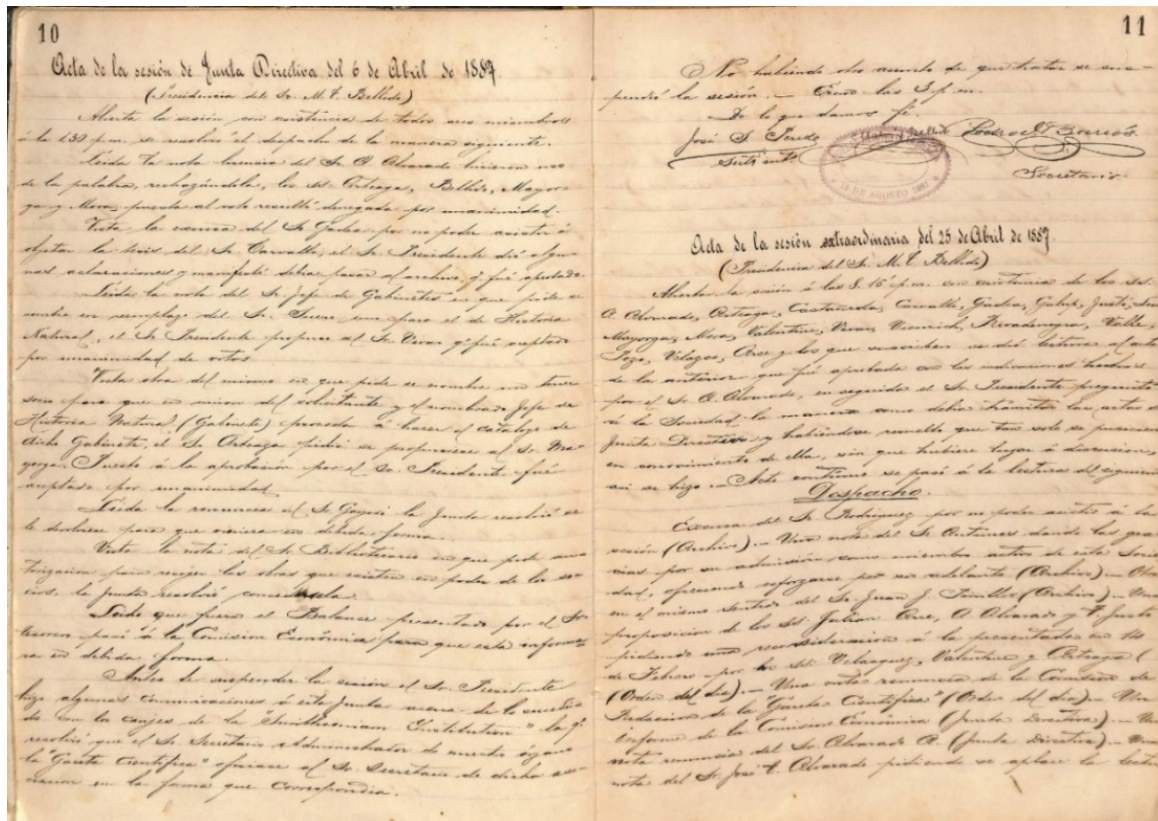 10
Acta de la sesión de Junta Directiva del 6 de Abril de 1887.
(Presidencia del Sr. M. T. Bellido)
Abierta la sesión con asistencia de todos sus miembros
á la 1.30 p.m. se resolvió el despacho de la manera siguiente.
Leida la nota renuncia del Sr. A. Alvarado hicieron uso
de la palabra, rechazándola, los SS. Arteaga, Bellido, Mayor-
ga y Mora, puesta al voto resultó denegada por unanimidad.
Vista la excusa del Sr. Gadea por no poder asistir á
objetar la tesis del Sr. Carvallo, el Sr. Presidente dió algu-
nas aclaraciones y manifestó debia pasar al archivo, y fué aprobado.
Leida la nota del Sr. Jefe de Gabinetes en que pide se
nombre en remplazo del Sr. uno para el de Historia
Natural, el Sr. Presidente propuso al Sr. Vivar y fué aceptado
por unanimidad de votos.
Vista otra del mismo en que pide se nombre un
para que en union del solicitante y el nombrado Jefe de
Historia Natural (Gabinete) proceda á hacer el catálogo de
dicho Gabinete, el Sr. Arteaga pidió se propusiese al Sr. Ma-
yorga. Puesto á la aprobacion por el Sr. Presidente fué
aceptado por unanimidad.
Leida la renuncia del Sr. la Junta resolvió se
le devolviese para que viniera en debida forma.
Vista la nota del Sr. Bibliotecario en que pide au-
torizacion para recojer las obras que existen en poder de los so-
cios, la Junta resolvió concedersela.
Leido que fuera el Balance presentado por el Sr.
tesorero pasó á la Comision Económica para que esta informa-
ra en debida forma.
Antes de suspender la sesion el Sr. Presidente
hizo algunas comunicaciones á esta Junta acerca de lo sucedi-
do con los canjes de la "Smithsonian Institution" la q'
resolvió que el Sr. Secretario Administrador de nuestro órgano
la "Gaceta Científica" oficiase al Sr. Secretario de dicha aso-
ciacion en la forma que correspondia.
11
No habiendo otro asunto de que tratar se sus-
pendió la sesión. — Eran las 3 p.m.
De lo que damos fé.
José S.
Secretario
19 DE AGOSTO 1891
Acta de la sesión extraordinaria del 25 de Abril de 1887.
(Presidencia del Sr. M. T. Bellido)
Abierta la sesión á las 8.15 p.m. con asistencia de los SS.
A. Alvarado, Arteaga, Castañeda, Carvallo, Gadea,
Mayorga, Mora, Valentine, Vivar, Rivadeneyra, Valle,
Pozo, Arce y los que suscriben se dió lectura al acta
de la anterior que fué aprobada con las indicaciones hechas
por el Sr. A. Alvarado, en seguida el Sr. Presidente preguntó
á la Sociedad la manera como debia tramitar las actas de
Junta Directiva y habiéndose resuelto que tan solo se pusiesen
en conocimiento de ella, sin que hubiere lugar á discusion,
asi se hizo. — Acto continuo se pasó á la lectura del siguiente
Despacho.
Excusa del Sr. Rodriguez por no poder asistir á la
sesión (Archivo). — Una nota del Sr. dando las gra-
cias por su admisión como miembro activo de esta Socie-
dad, ofreciendo esforzarse por su adelanto (Archivo). — Otra
en el mismo sentido del Sr. Juan J. (Archivo). — Una
proposicion de los SS. Julian Arce, A. Alvarado y
pidiendo una reconsideracion á la presentada en 14
de Febrero por los SS. Velasquez, Valentine y Arteaga (
(Orden del dia). — Una nota renuncia de la Comision de
Redaccion de la "Gaceta Científica" (Orden del dia). — Un
informe de la Comision Económica (Junta Directiva). — Una
nota renuncia del Sr. Alvarado A. (Junta Directiva). — Una
nota del Sr. José T. Alvarado pidiendo se aplace la lectu